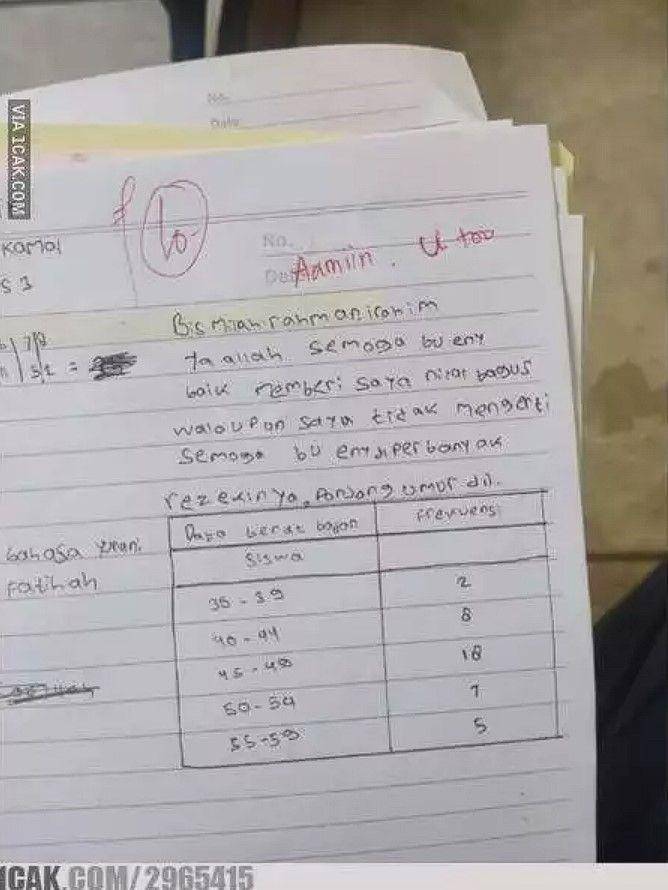 VIA 1CAK.COM
No.
Date
Kamal
S 3
10
No.
Aamiin. U too
Bismilah rahmanirohim
Ya allah semoga bu eny
baik memberi saya nilai bagus
waloupun saya tidak mengerti
semoga bu eny diperbanyak
rezekinya, Panjang umur dll.
bahasa
Fatihah
Data berat badan
Siswa
Frekuensi
35 - 39
2
40 - 44
8
45 - 49
18
50 - 54
7
55 - 59
5
1CAK.COM/2965415